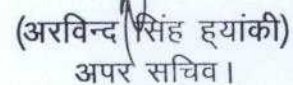 (अरविन्द सिंह ह्यांकी)
अपर सचिव।